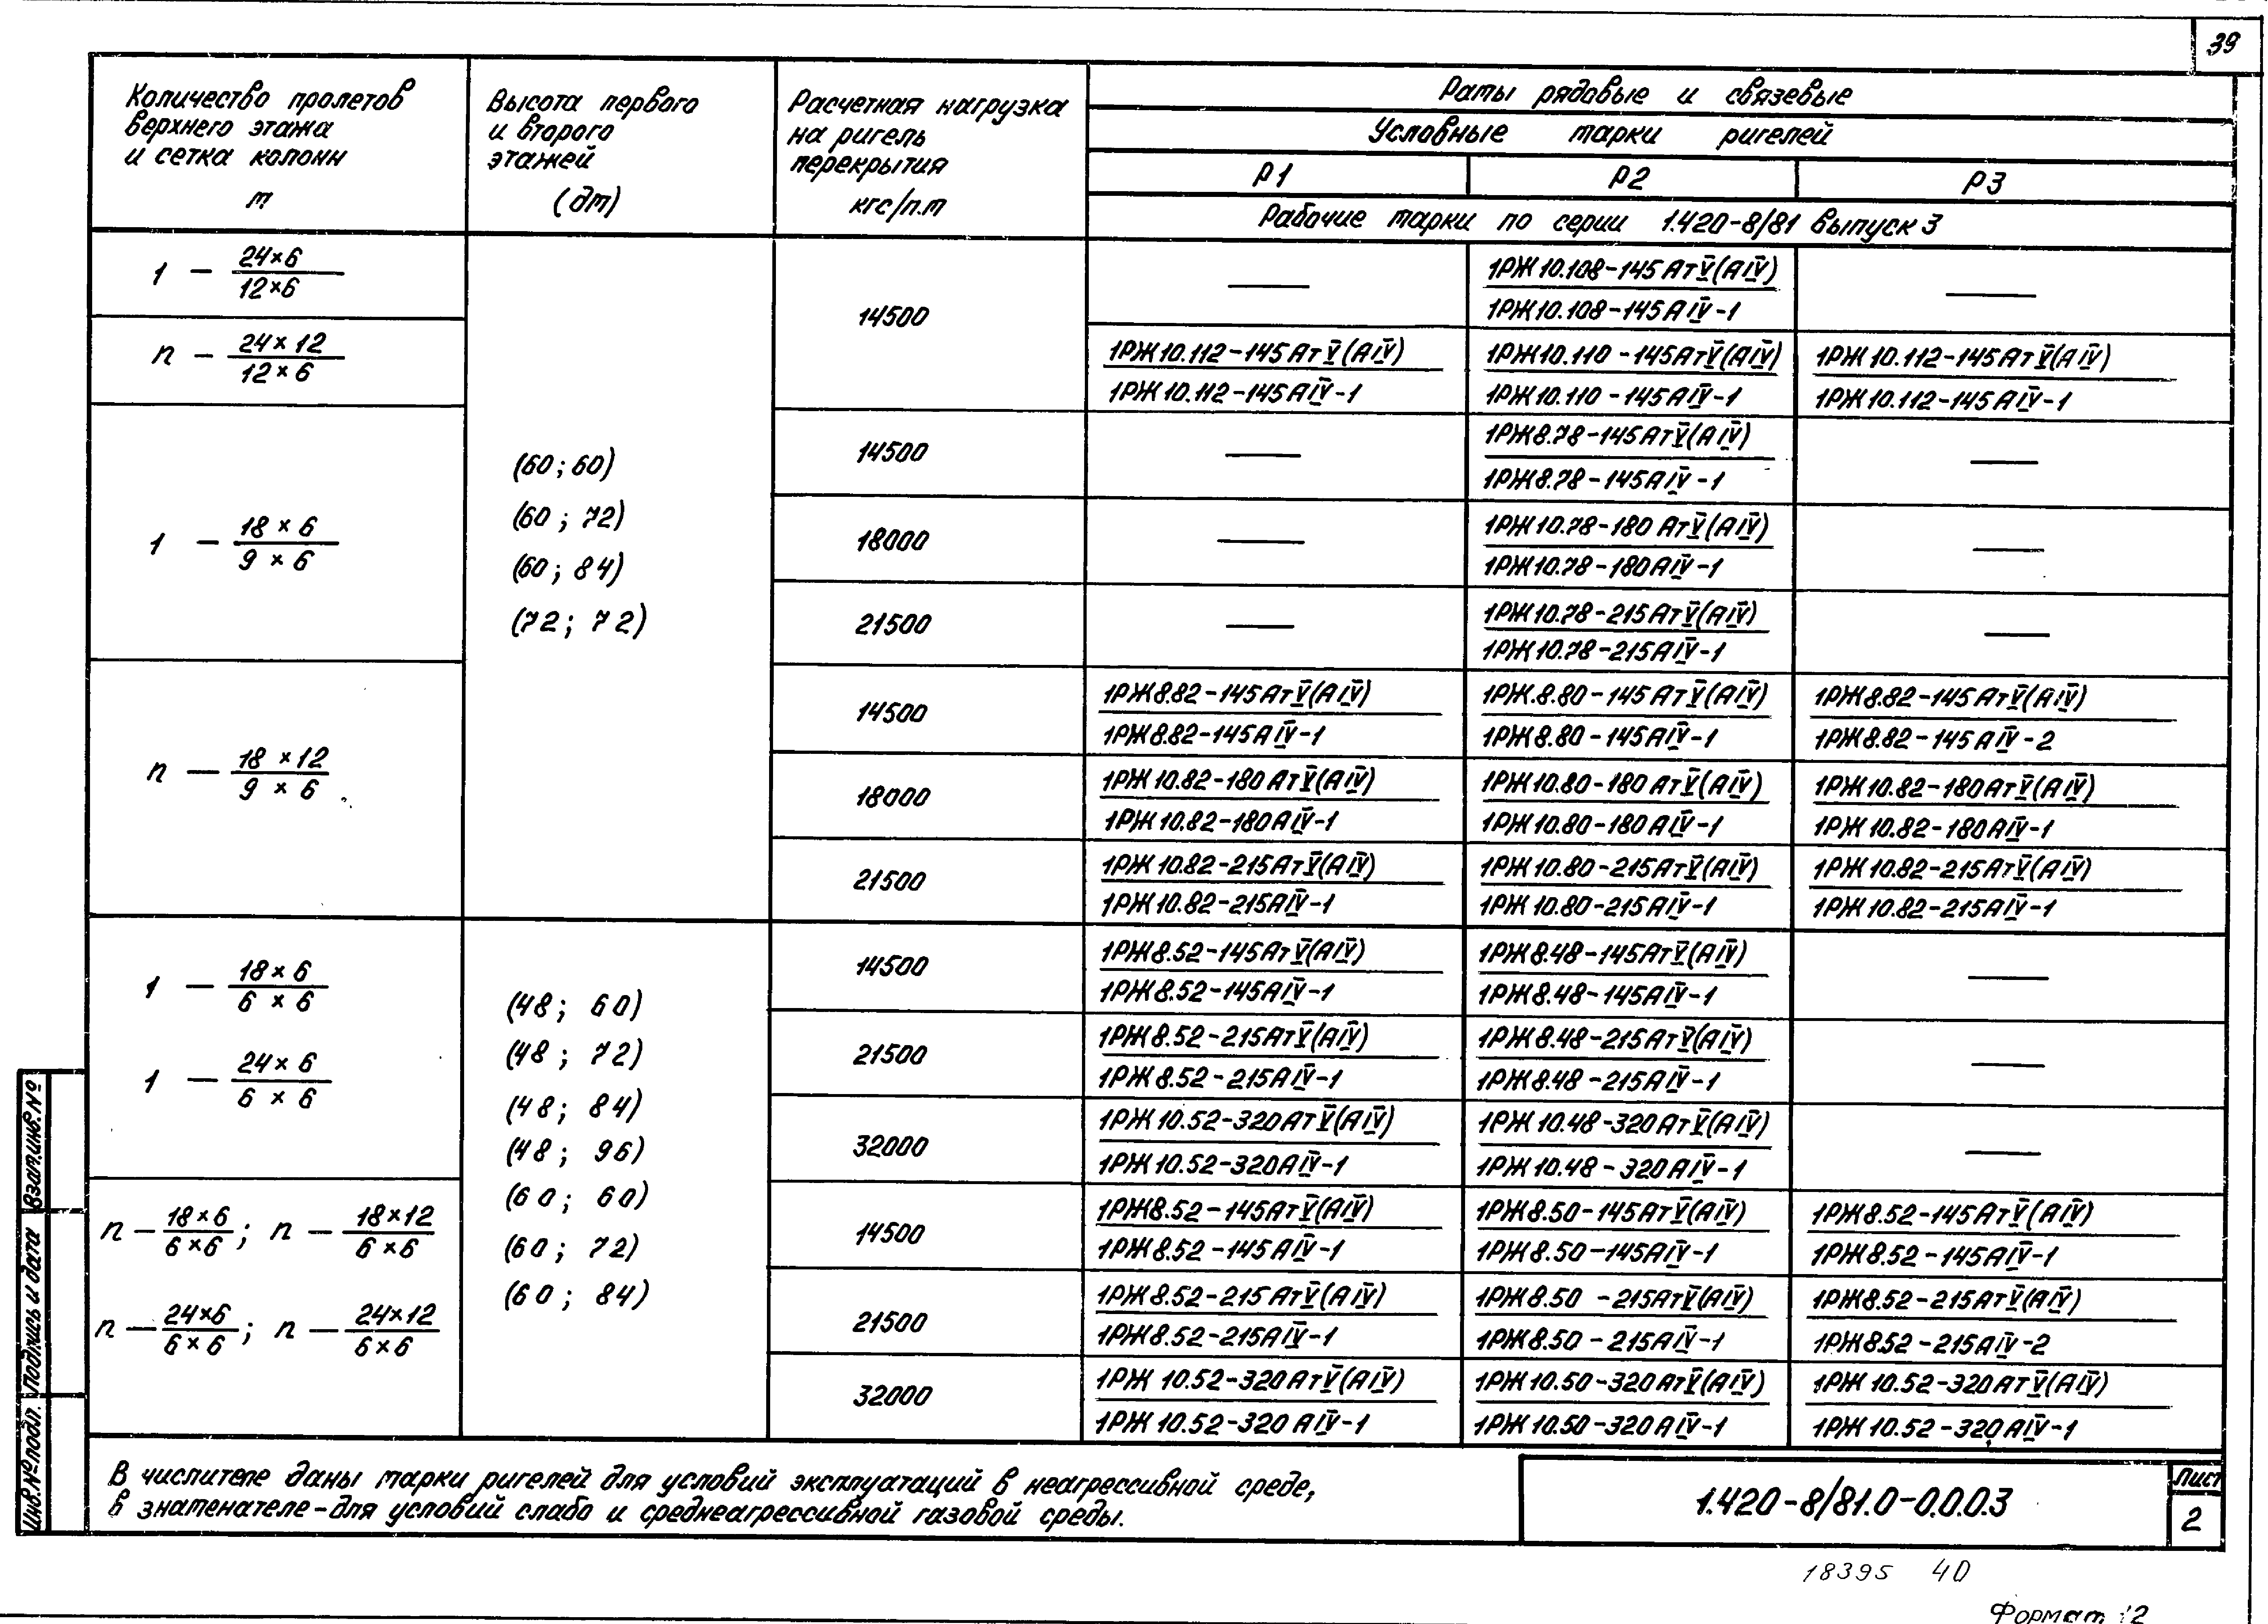 39
Количество пролетов
верхнего этажа
и сетка колонн
м
Высота первого
и второго
этажей
(дм)
Расчетная нагрузка
на ригель
перекрытия
кгс/п.м
Рамы рядовые и связевые
Условные марки ригелей
Р1 Р2 Р3
Рабочие марки по серии 1.420-8/81 выпуск 3
1 — 24×6
12×6
14500
—
1РЖ10.108-145АтV(АIV)
1РЖ10.108-145АIV-1
—
n — 24×12
12×6
1РЖ10.112-145АтV(АIV)
1РЖ10.112-145АIV-1
1РЖ10.110-145АтV(АIV)
1РЖ10.110-145АIV-1
1РЖ10.112-145АтV(АIV)
1РЖ10.112-145АIV-1
1 — 18×6
9×6
(60; 60)
(60; 72)
(60; 84)
(72; 72)
14500
—
1РЖ8.78-145АтV(АIV)
1РЖ8.78-145АIV-1
—
18000
—
1РЖ10.78-180АтV(АIV)
1РЖ10.78-180АIV-1
—
21500
—
1РЖ10.78-215АтV(АIV)
1РЖ10.78-215АIV-1
—
n — 18×12
9×6
14500
1РЖ8.82-145АтV(АIV)
1РЖ8.82-145АIV-1
1РЖ.8.80-145АтV(АIV)
1РЖ8.80-145АIV-1
1РЖ8.82-145АтV(АIV)
1РЖ8.82-145АIV-2
18000
1РЖ10.82-180АтV(АIV)
1РЖ10.82-180АIV-1
1РЖ10.80-180АтV(АIV)
1РЖ10.80-180АIV-1
1РЖ10.82-180АтV(АIV)
1РЖ10.82-180АIV-1
21500
1РЖ10.82-215АтV(АIV)
1РЖ10.82-215АIV-1
1РЖ10.80-215АтV(АIV)
1РЖ10.80-215АIV-1
1РЖ10.82-215АтV(АIV)
1РЖ10.82-215АIV-1
1 — 18×6
6×6
1 — 24×6
6×6
(48; 60)
(48; 72)
(48; 84)
(48; 96)
(60; 60)
(60; 72)
(60; 84)
14500
1РЖ8.52-145АтV(АIV)
1РЖ8.52-145АIV-1
1РЖ8.48-145АтV(АIV)
1РЖ8.48-145АIV-1
—
21500
1РЖ8.52-215АтV(АIV)
1РЖ8.52-215АIV-1
1РЖ8.48-215АтV(АIV)
1РЖ8.48-215АIV-1
—
32000
1РЖ10.52-320АтV(АIV)
1РЖ10.52-320АIV-1
1РЖ10.48-320АтV(АIV)
1РЖ10.48-320АIV-1
—
n — 18×6
6×6; n — 18×12
6×6
n — 24×6
6×6; n — 24×12
6×6
14500
1РЖ8.52-145АтV(АIV)
1РЖ8.52-145АIV-1
1РЖ8.50-145АтV(АIV)
1РЖ8.50-145АIV-1
1РЖ8.52-145АтV(АIV)
1РЖ8.52-145АIV-1
21500
1РЖ8.52-215АтV(АIV)
1РЖ8.52-215АIV-1
1РЖ8.50-215АтV(АIV)
1РЖ8.50-215АIV-1
1РЖ8.52-215АтV(АIV)
1РЖ8.52-215АIV-2
32000
1РЖ10.52-320АтV(АIV)
1РЖ10.52-320АIV-1
1РЖ10.50-320АтV(АIV)
1РЖ10.50-320АIV-1
1РЖ10.52-320АтV(АIV)
1РЖ10.52-320АIV-1
В числителе даны марки ригелей для условий эксплуатаций в неагрессивной среде,
в знаменателе - для условий слабо и среднеагрессивной газовой среды.
1.420-8/81.0-0.0.0.3
Лист
2
Инв.№подл. Подпись и дата Взам.инв.№
18395 40
Формат 12